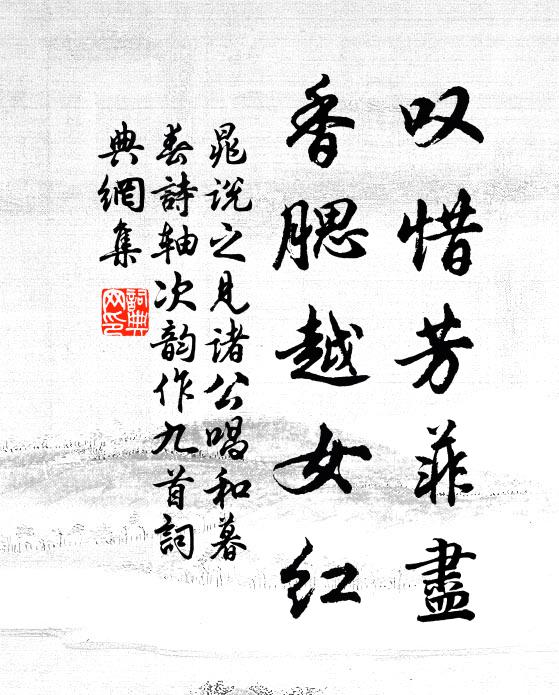 叹惜芳菲尽
香腮越女红
晁说之见诸公唱和暮
春詩轴次韵作九首詞
典網集
詞典
网印